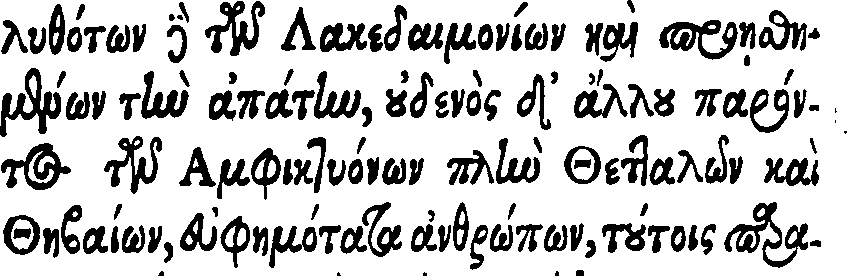 λυθότων δὲ τῶν Λακεδαιμονίων καὶ προῃσθη-
μένων τὴν ἀπάτην, οὐδενὸς δ' ἄλλου παρόν-
τος τῶν Αμφικτυόνων πλὴν Θετταλῶν καὶ
Θηβαίων, εὐφημότατα ἀνθρώπων, τούτοις παρα-